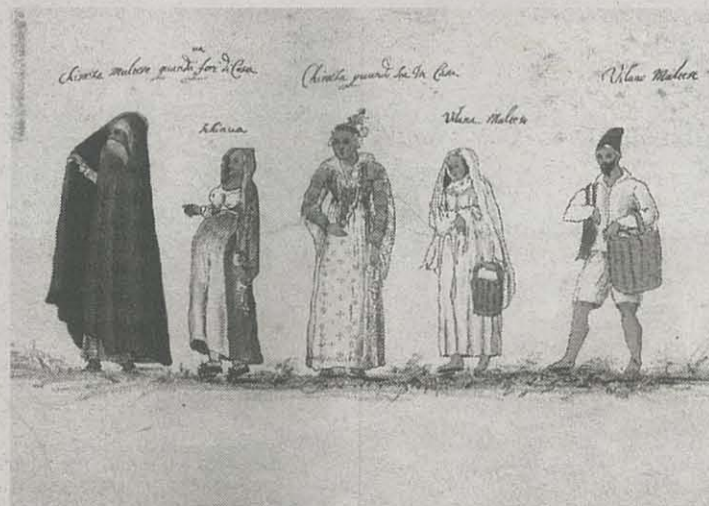 maltese quando va fori di Casa
Schiava
quando sta In Casa
Vilana Maltese
Vilano Maltese